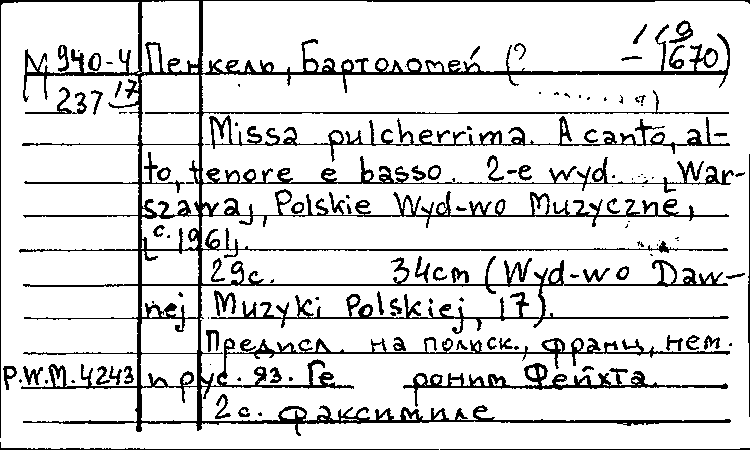 М 940-4 Пенкель, Бартоломей (? – 1670)
237 17
Missa pulcherrima. A canto, al-
to, tenore e basso. 2-e wyd. [War-
szawa], Polskie Wyd-wo Muzyczne,
[c. 1961].
29с. 34cm (Wyd-wo Daw-
nej Muzyki Polskiej, 17).
Предисл. на польск., франц., нем.
P.W.M. 4243 и рус. яз. Ге роним Фейхта.
2 с. факсимиле